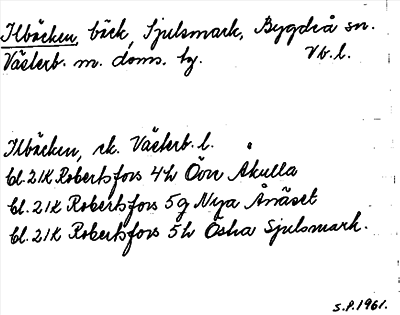 Ilbäcken, bäck, Sjulsmark, Bygdeå sn.
Västerb. m. doms. hg. Vb. l.
Ilbäcken, rk. Västerb. l.
bl. 21K Robertsfors 4h Övre Åkulla
bl. 21K Robertsfors 5g Nya Ånäset
bl. 21K Robertsfors 5h Östra Sjulsmark.
S.P. 1961.